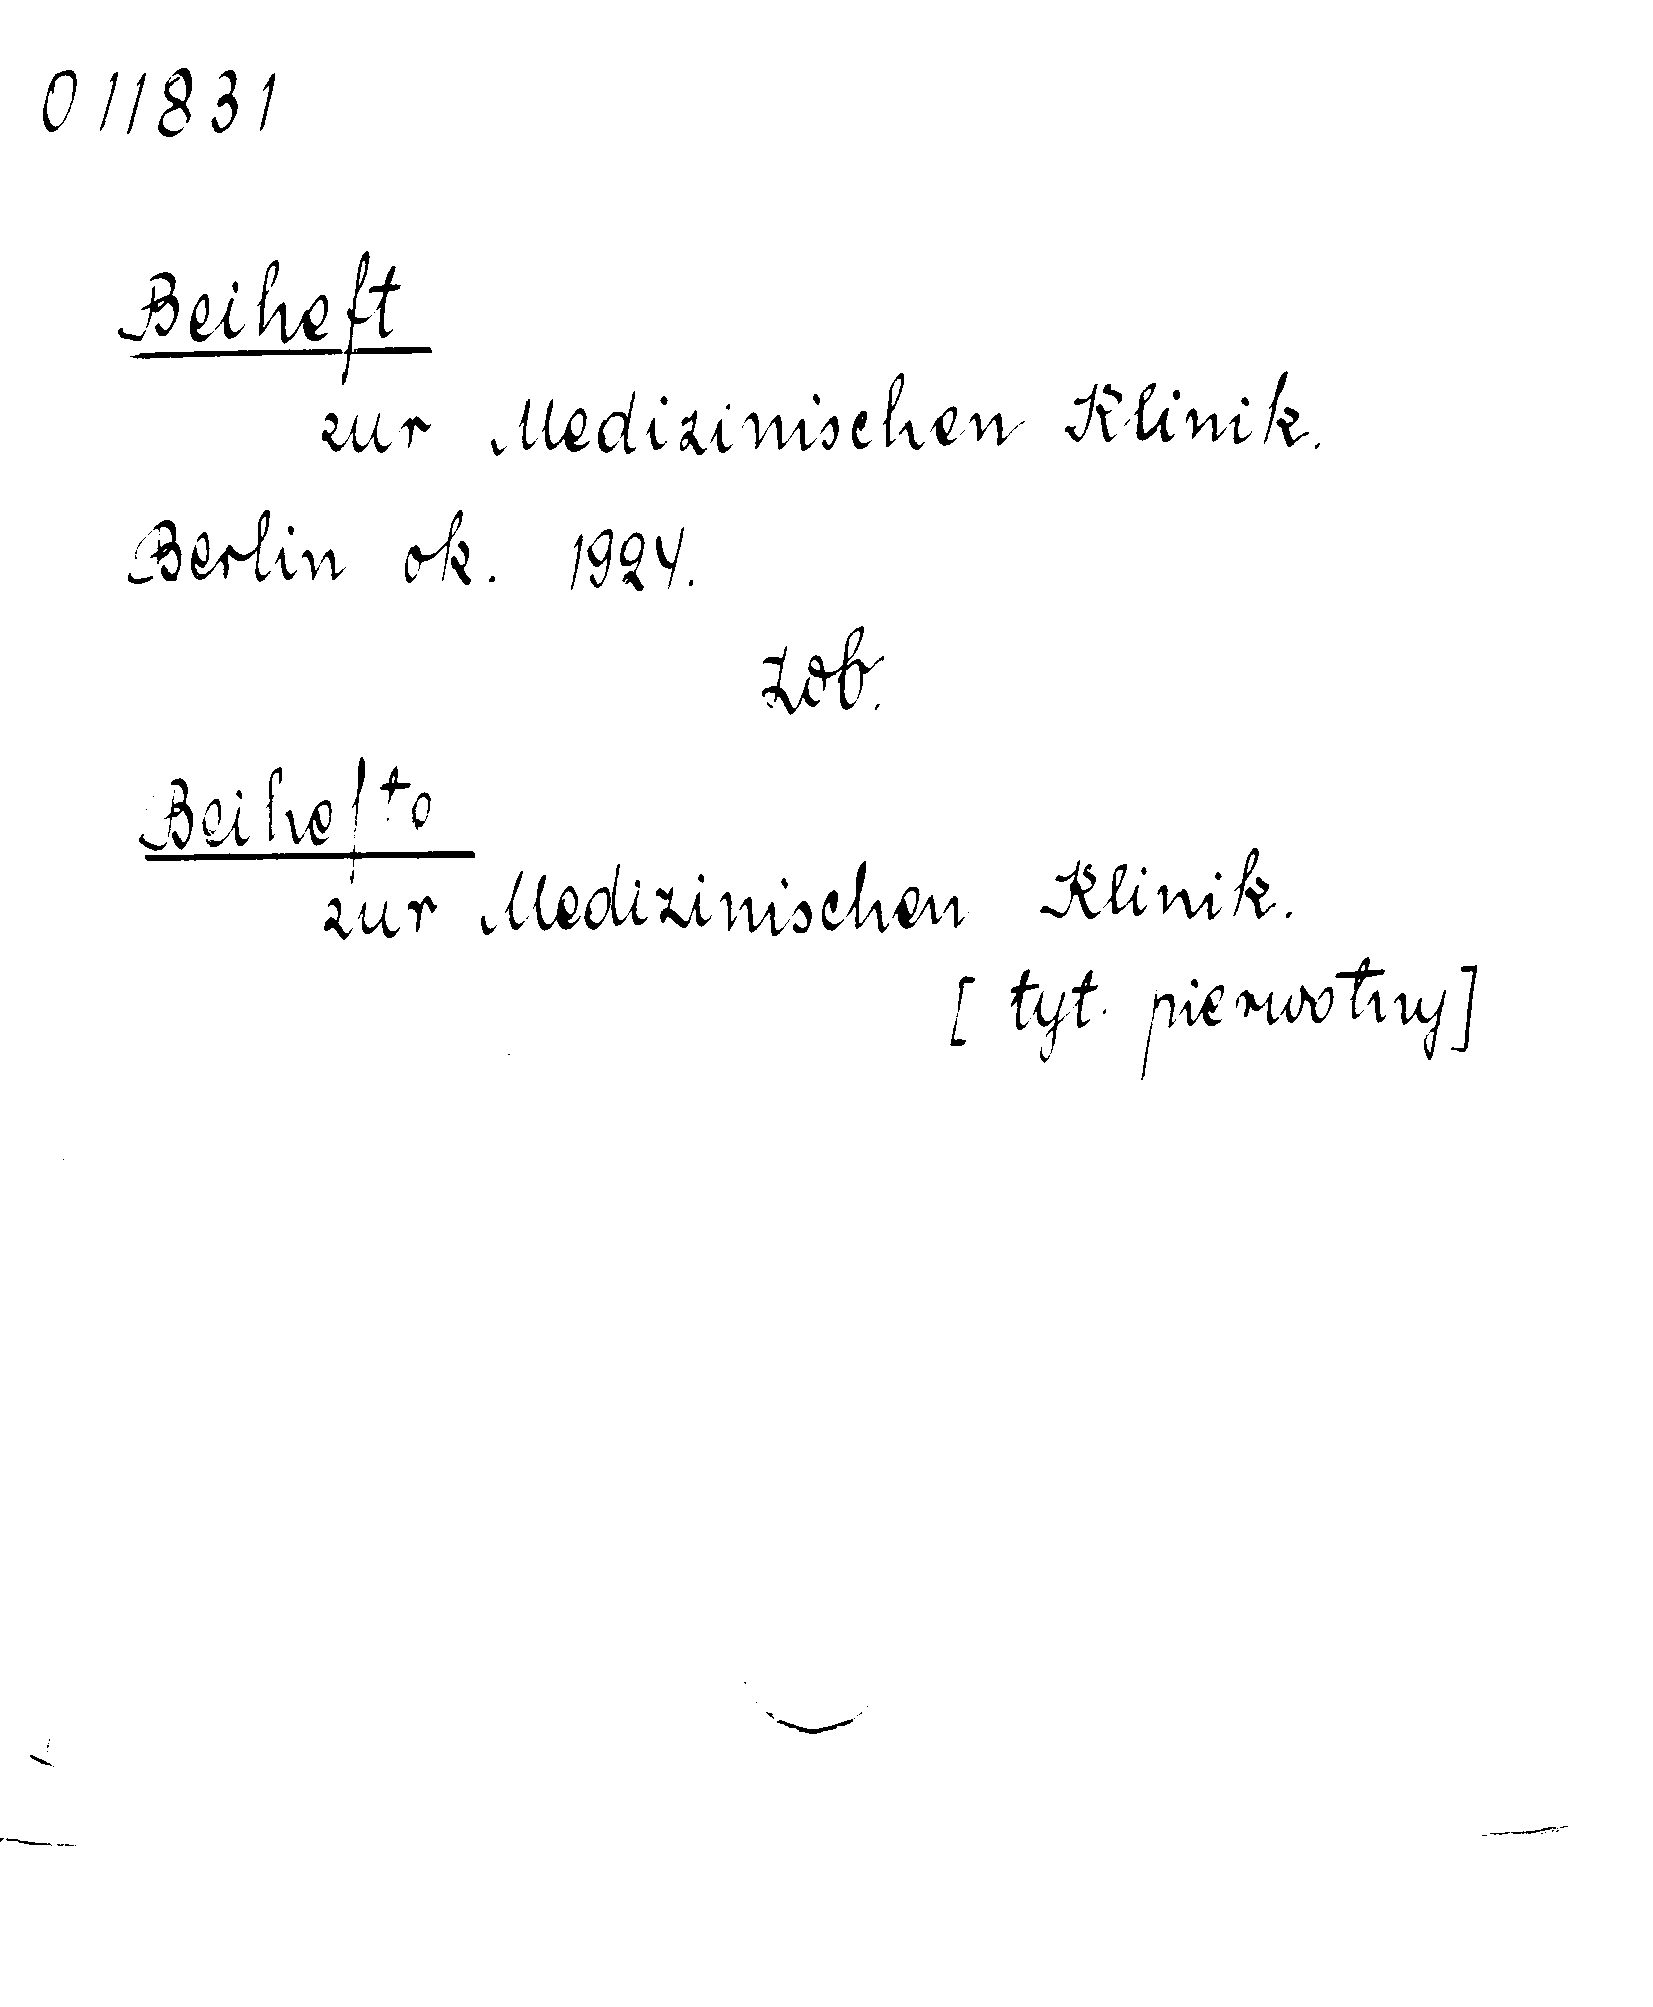 011831
Beiheft
zur Medizinischen Klinik.
Berlin ok. 1924.
zob.
Beihefte
zur Medizinischen Klinik.
[tyt. pierwotny]